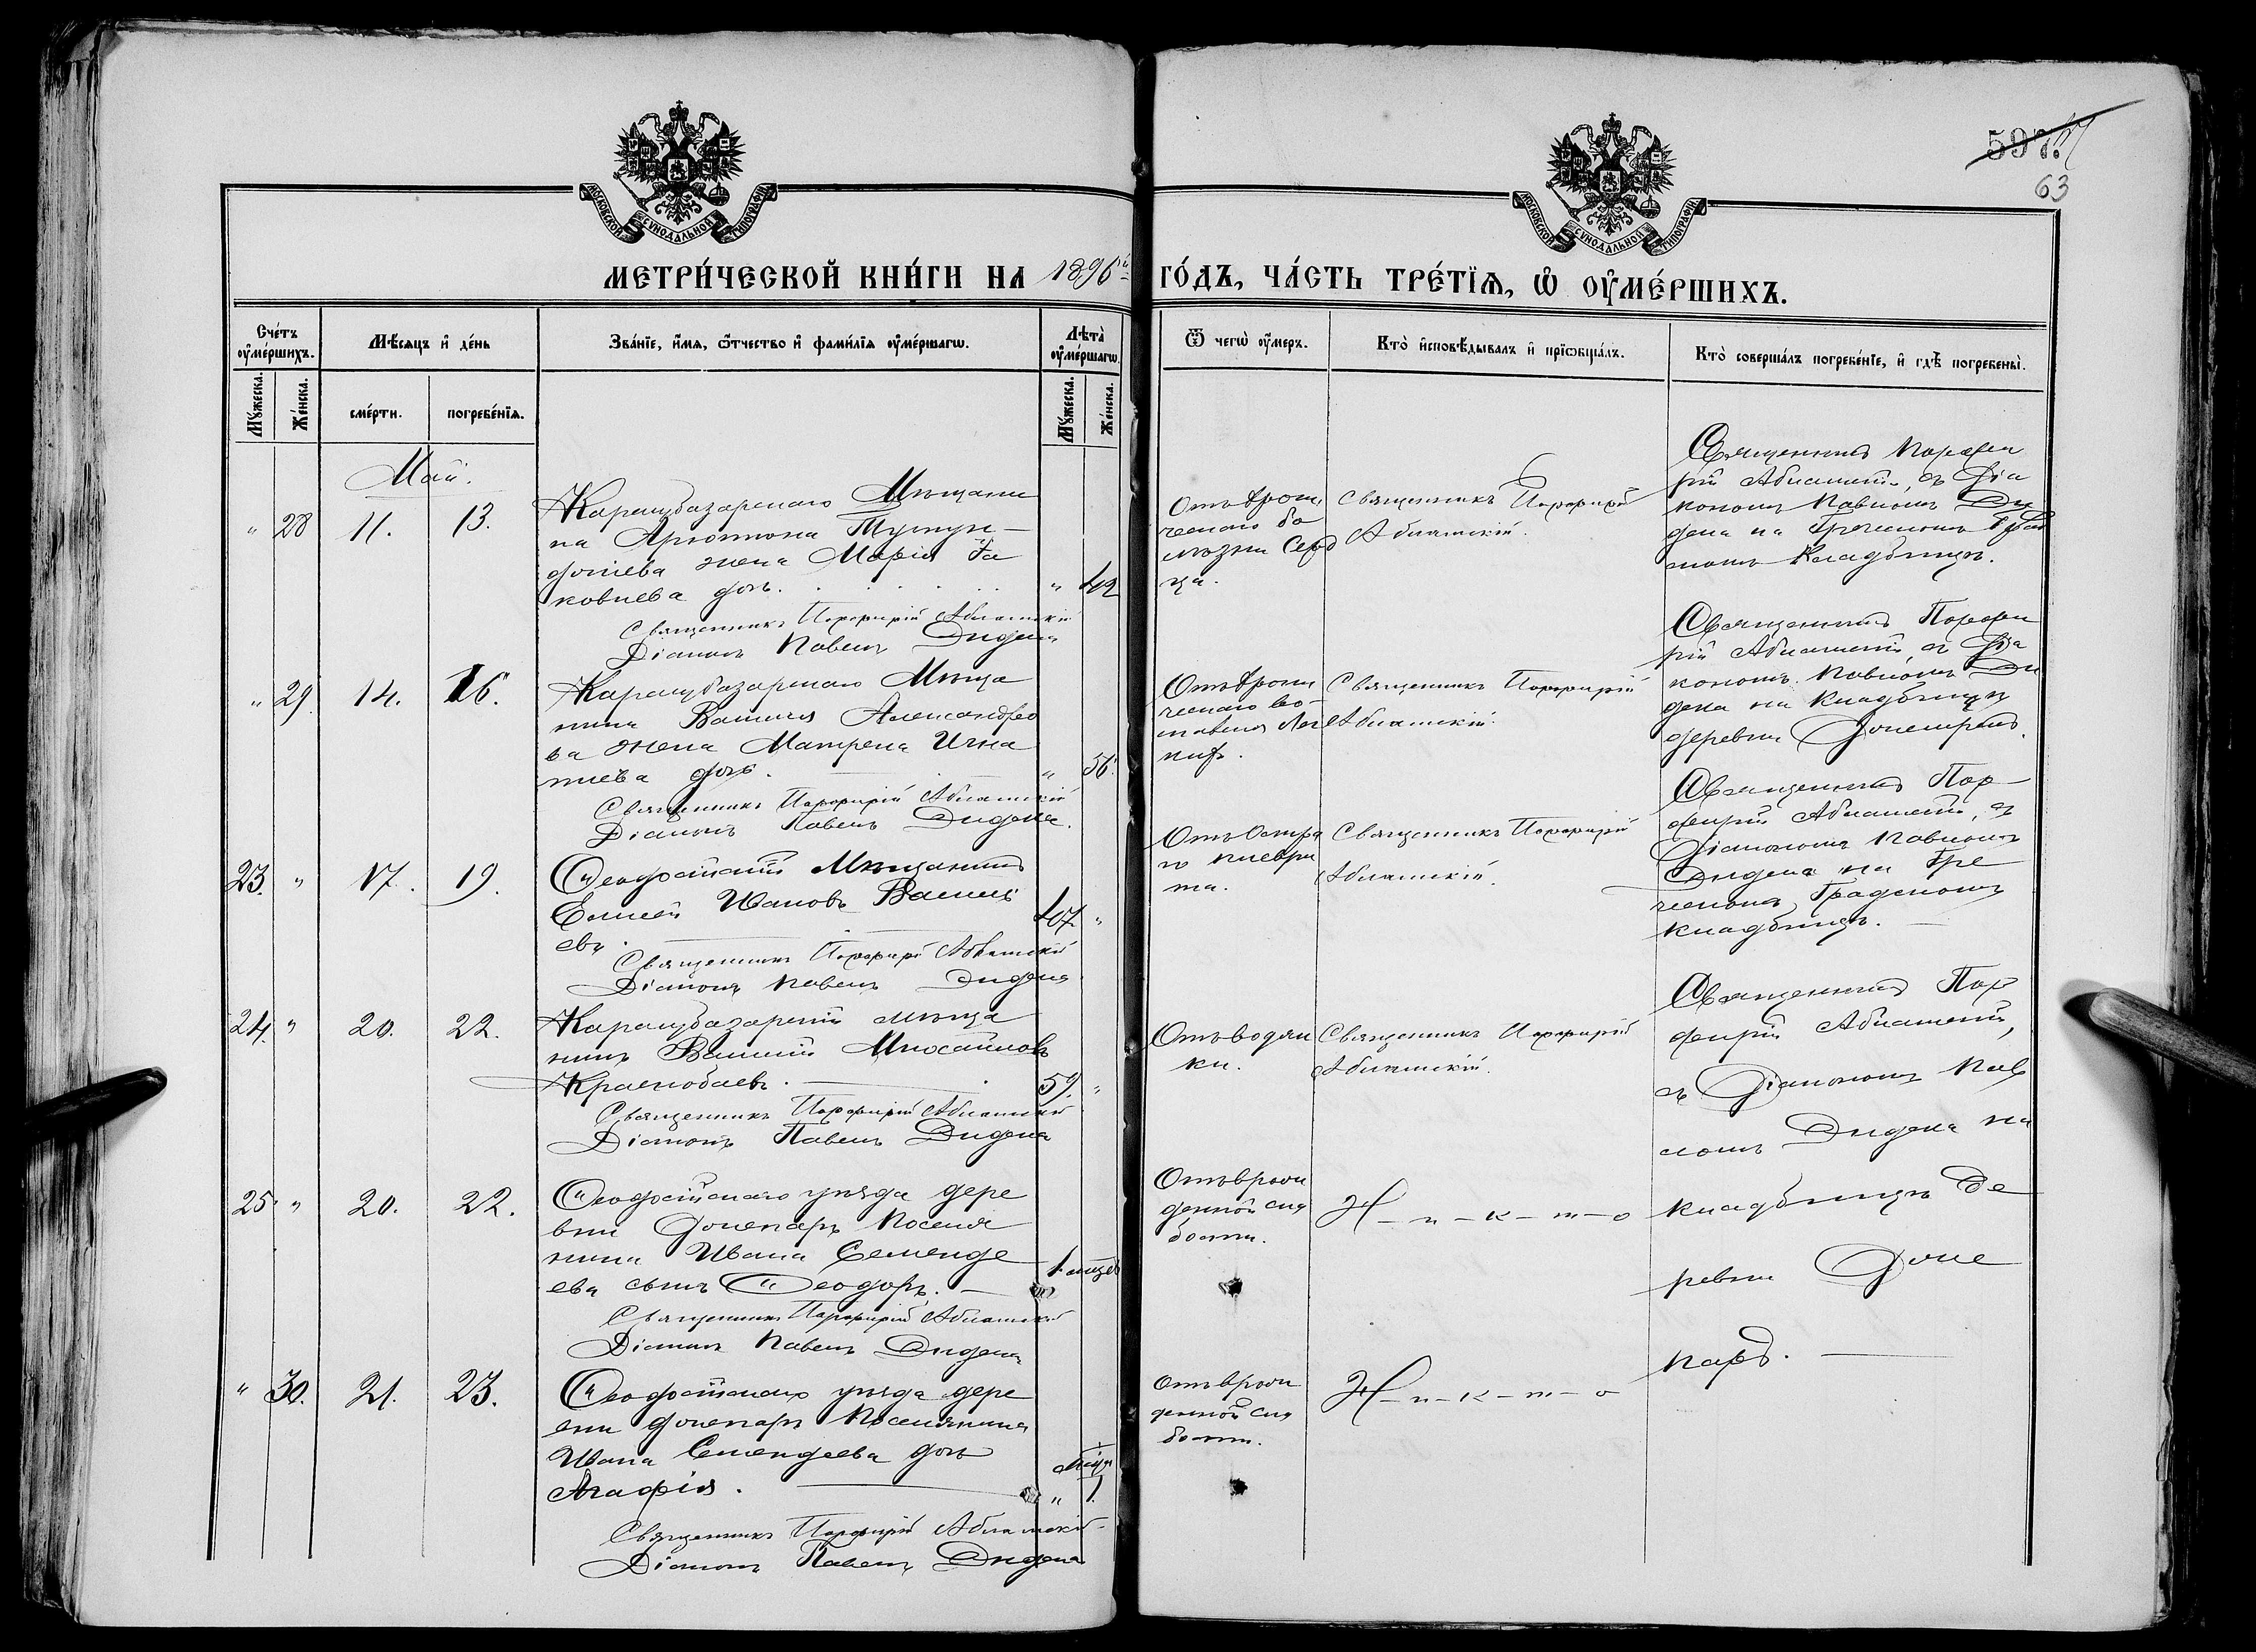 МОСКОВСКОЙ СѴНОДАЛЬНОЙ ТИПОГРАФІИ
МОСКОВСКОЙ СѴНОДАЛЬНОЙ ТИПОГРАФІИ
597
63
МЕТРИ́ЧЕСКОЙ КНИ́ГИ НА 1896й
ГО́ДЪ, ЧА́СТЬ ТРЕ́ТІѦ, Ѡ҆ ОУ҆МЕ́РШИХЪ.
Сче́тъ оу҆ме́ршихъ.
Мꙋ́жеска.
Же́нска.
Мѣ́сѧцъ и҆ де́нь
сме́рти.
погребе́нїѧ.
Зва́нїе, и҆́мѧ, ѻ҆́тчество и҆ фами́лїѧ оу҆ме́ршагѡ.
Лѣ́та оу҆ме́ршагѡ.
Мꙋ́жеска.
Же́нска.
Ѿ чегѡ̀ оу҆́меръ.
Кто̀ и҆сповѣ́дывалъ и҆ прїѡбща́лъ.
Кто̀ соверша́лъ погребе́нїе, и҆ гдѣ̀ погребены̀.
Май.
" 28 11. 13.
Карасубазарскаго Мѣщани
на
жена Марія Іа
ковлева дочь.
" 42
Священникъ Порфирій Абламскій
Діаконъ Павелъ Дидена
Отъ хрони
ческой бо
лѣзни Серд
ца.
Священникъ Порфирій
Абламскій.
Священникъ Порфи
рій Абламскій, съ Діа
кономъ Павломъ Ди
дена на Греческомъ Град
скомъ Кладбищѣ.
" 29 14. 16.
Карасубазарскаго Мѣща
нина Василія Александро
ва жена Матрена Игна
тіева дочь.
" 56.
Священникъ Порфирій Абламскій
Діаконъ Павелъ Дидена.
Отъ хрони
ческаго во-
спаленія Лег
кихъ.
Священникъ Порфирій
Абламскій.
Священникъ Порфи
рій Абламскій, съ Діа
кономъ Павломъ Ди
дена на кладбищѣ
деревни
23. " 17. 19.
Ѳеодосійскій Мѣщанинъ
Елисей Ивановъ Василь
евъ.
47. "
Священникъ Порфирій Абламскій
Діаконъ Павелъ Дидена
Отъ Остра
го плеври
та.
Священникъ Порфирій
Абламскій.
Священникъ Пор-
фирій Абламскій, съ
Діакономъ Павломъ
Дидена на Гре
ческомъ Градскомъ
кладбищѣ.
24. " 20. 22.
Карасубазарскій мѣща
нинъ Василій Михайловъ
59. "
Священникъ Порфирій Абламскій
Діаконъ Павелъ Дидена
Отъ водян
ки.
Священникъ Порфирій
Абламскій.
Священникъ Пор
фирій Абламскій,
съ Діакономъ Пав
ломъ Дидена на
кладбищѣ де
ревни Доче
25. " 20. 22.
Ѳеодосійскаго уѣзда дере
вни Поселя
нина Ивана Семенде
ева сынъ Ѳеодоръ.
1. мѣсяц
Священникъ Порфирій Абламскій
Діаконъ Павелъ Дидена
Отъ врож
денной сла
бости.
Н-и-к-т-о
" 30. 21. 23.
Ѳеодосійскаго уѣзда дере
вни Поселянина
Ивана Семендеева дочь
Агафія.
" 1.
Священникъ Порфирій Абламскій
Діаконъ Павелъ Дидена
Отъ врож
денной сла
бости.
Н-и-к-т-о